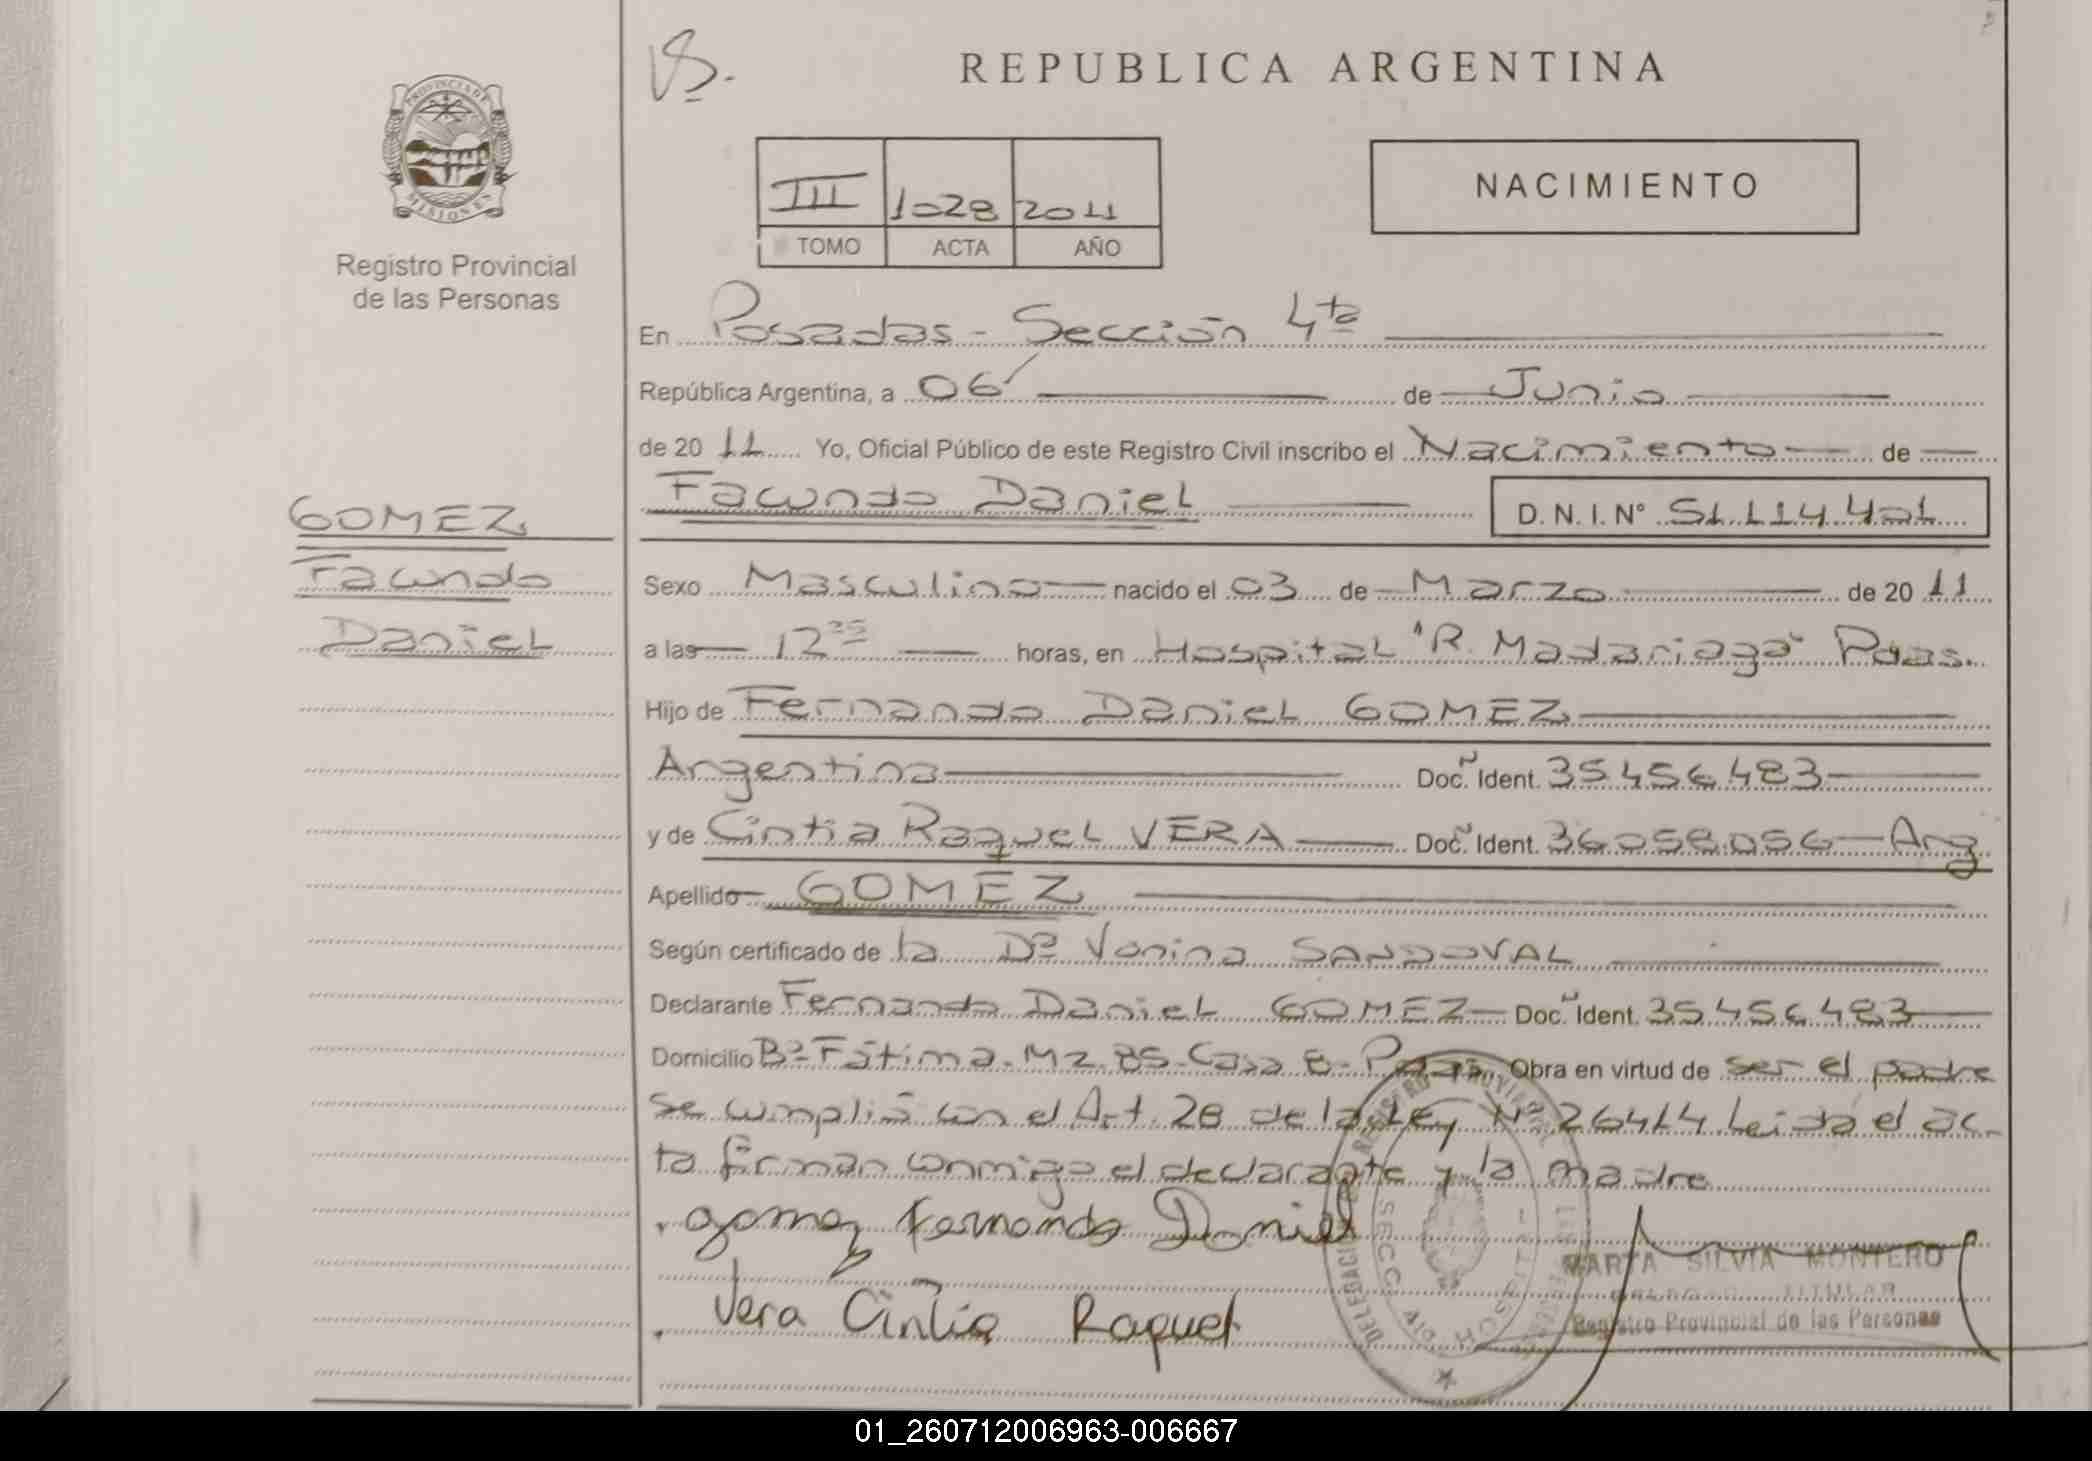 PROVINCIA DE
MISIONES
Registro Provincial
de las Personas
GOMEZ
Facundo
Daniel
REPUBLICA ARGENTINA
III 1028 2011
TOMO ACTA AÑO
NACIMIENTO
En Posadas - Sección 4ta
República Argentina, a 06 de Junio
de 20 11 Yo, Oficial Público de este Registro Civil inscribo el Nacimiento de
Facundo Daniel D. N. I. Nº 51.114.401
Sexo Masculino nacido el 03 de Marzo de 20 11
a las 12 35 horas, en Hospital "R. Madariaga" Pdas.
Hijo de Fernando Daniel GOMEZ
Argentino Doc. Ident. 35.456.483
y de Cintia Raquel VERA Doc. Ident. 36.058.056 - Arg
Apellido GOMEZ
Según certificado de la Dra Vanina SANDOVAL
Declarante Fernando Daniel GOMEZ Doc. Ident. 35.456.483
Domicilio Bº Fátima - Mz. 85 - Casa 8 - Pdas. Obra en virtud de ser el padre
Se cumplió con el Art. 28 de la Ley Nº 26414 Leida el ac-
ta firman conmigo el declarante y la madre
gomez Fernando Daniel
Vera Cintia Raquel
MARTA SILVIA MONTERO
DELEGADO TITULAR
Registro Provincial de las Personas
01_260712006963-006667